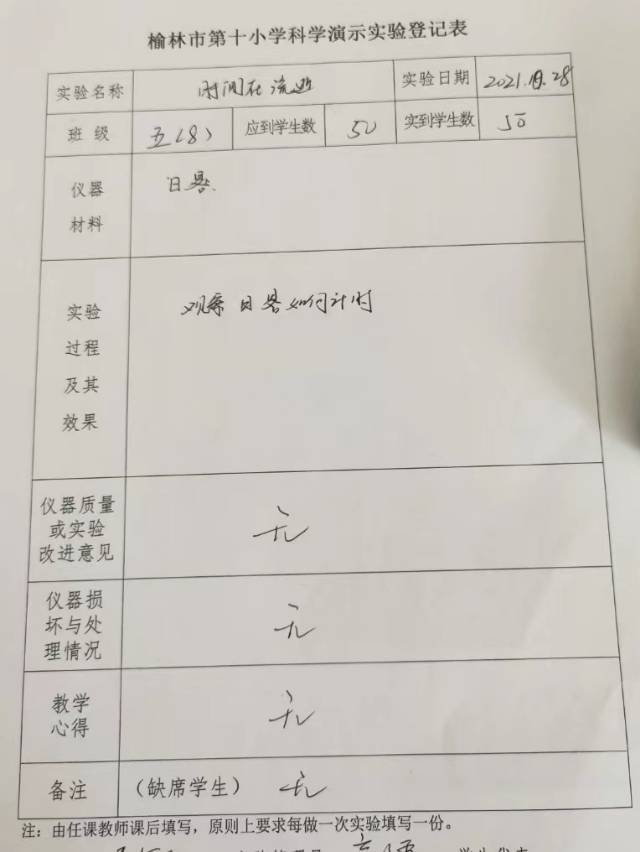 榆林市第十小学科学演示实验登记表
实验名称 时间在流逝 实验日期 2021.10.28
班 级 五(8) 应到学生数 50 实到学生数 50
仪器
材料
日晷.
实验
过程
及其
效果
观察日晷如何计时
仪器质量
或实验
改进意见
无
仪器损
坏与处
理情况
无
教学
心得
无
备注 (缺席学生) 无
注：由任课教师课后填写，原则上要求每做一次实验填写一份。